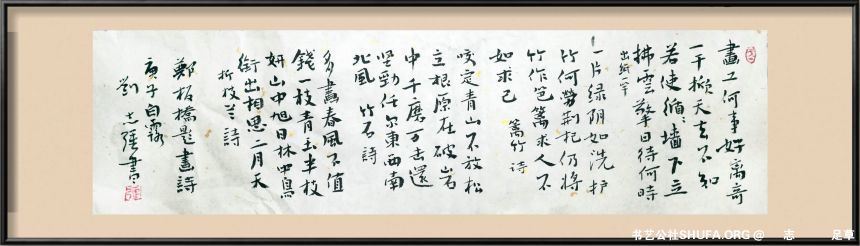 畫工何事好离奇
一干掀天去不知
若使循〻墙下立
拂雲擎日待何時
出紙一竿
一片绿阴如洗护
竹何勞荆杞仍將
竹作笆篱求人不
如求己 篱竹诗
咬定青山不放松
立根原在破岩
中千磨万击還
坚勁任尔東西南
北風 竹石詩
多畫春風不值
錢一枝青玉半枝
妍山中旭日林中鳥
銜出相思二月天
折枝兰詩
鄭板橋題畫詩
庚子白露
劉志强書
书艺公社SHUFA.ORG @ 志 足草